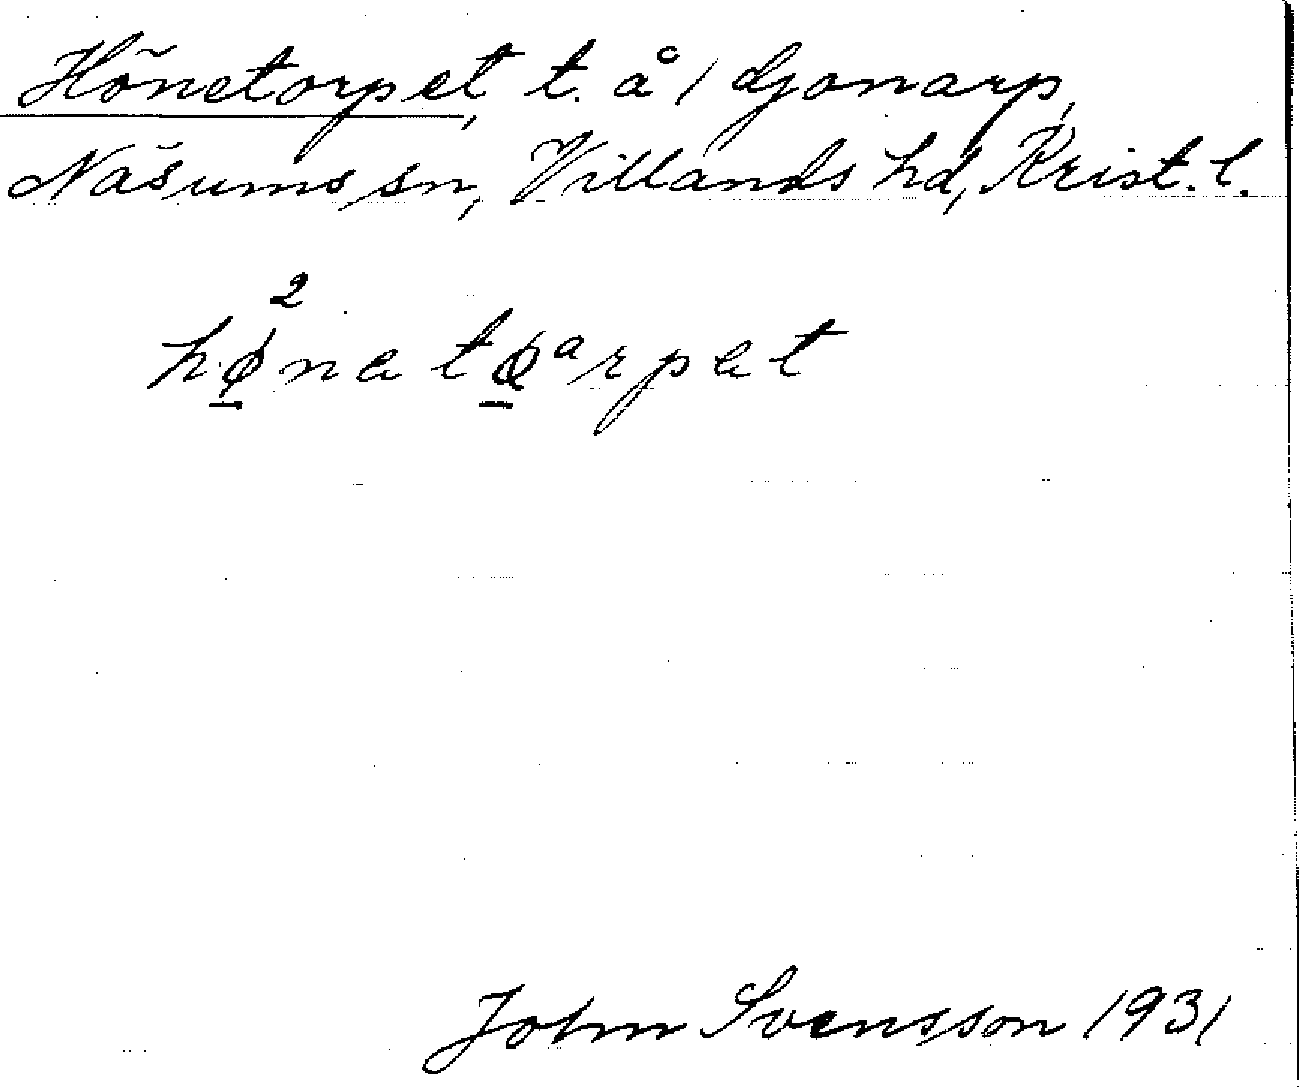 Hönetorpet, t. å 1 Djonarp,
Näsums sn, Villands hd, Krist. l.
2
hønatøarpet
John Svensson 1931